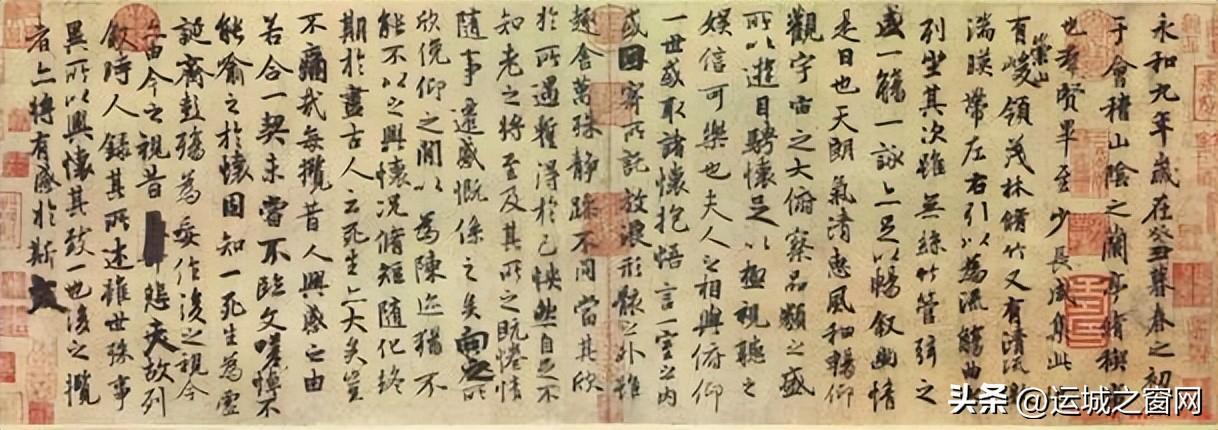 永和九年歲在癸丑暮春之初
于會稽山陰之蘭亭脩稧
也群賢畢至少長咸集此
有崇山峻領茂林脩竹又有清流
湍暎帶左右引以為流觴曲
列坐其次雖無絲竹管弦之
盛一觴一詠亦足以暢敘幽情
是日也天朗氣清惠風和暢仰
觀宇宙之大俯察品類之盛
所以遊目騁懷足以極視聽之
娛信可樂也夫人之相與俯仰
一世或取諸懷抱悟言一室之內
或因寄所託放浪形骸之外雖
趣舍萬殊靜躁不同當其欣
於所遇暫得於己怏然自足不
知老之將至及其所之既惓情
隨事遷感慨係之矣向之所
欣俛仰之閒以為陳迹猶不
能不以之興懷況脩短隨化終
期於盡古人云死生亦大矣豈
不痛哉每攬昔人興感之由
若合一契未嘗不臨文嗟悼不
能喻之於懷固知一死生為虛
誕齊彭殤為妄作後之視今
亦由今之視昔悲夫故列
敘時人錄其所述雖世殊事
異所以興懷其致一也後之攬
者亦將有感於斯文
头条 @运城之窗网